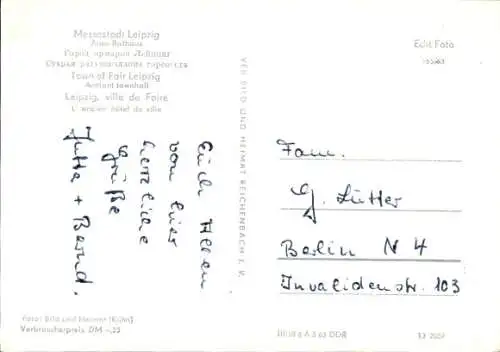 Messestadt Leipzig
Altes Rathaus
Город ярмарки Лейпциг
Старая ратуша
Town of Fair Leipzig
Ancient townhall
Leipzig, ville de Foire
L'ancien hôtel de ville
Edit Foto
VEB BILD UND HEIMAT REICHENBACH I. V.
Euch Allen
von hier
herzliche
Grüße
Jutta + Bernd.
Fam.
G. Lütter
Berlin N 4
Invalidenstr. 103
Foto: Bild und Heimat
Verbraucherpreis DM -,25
A 3 65 DDR